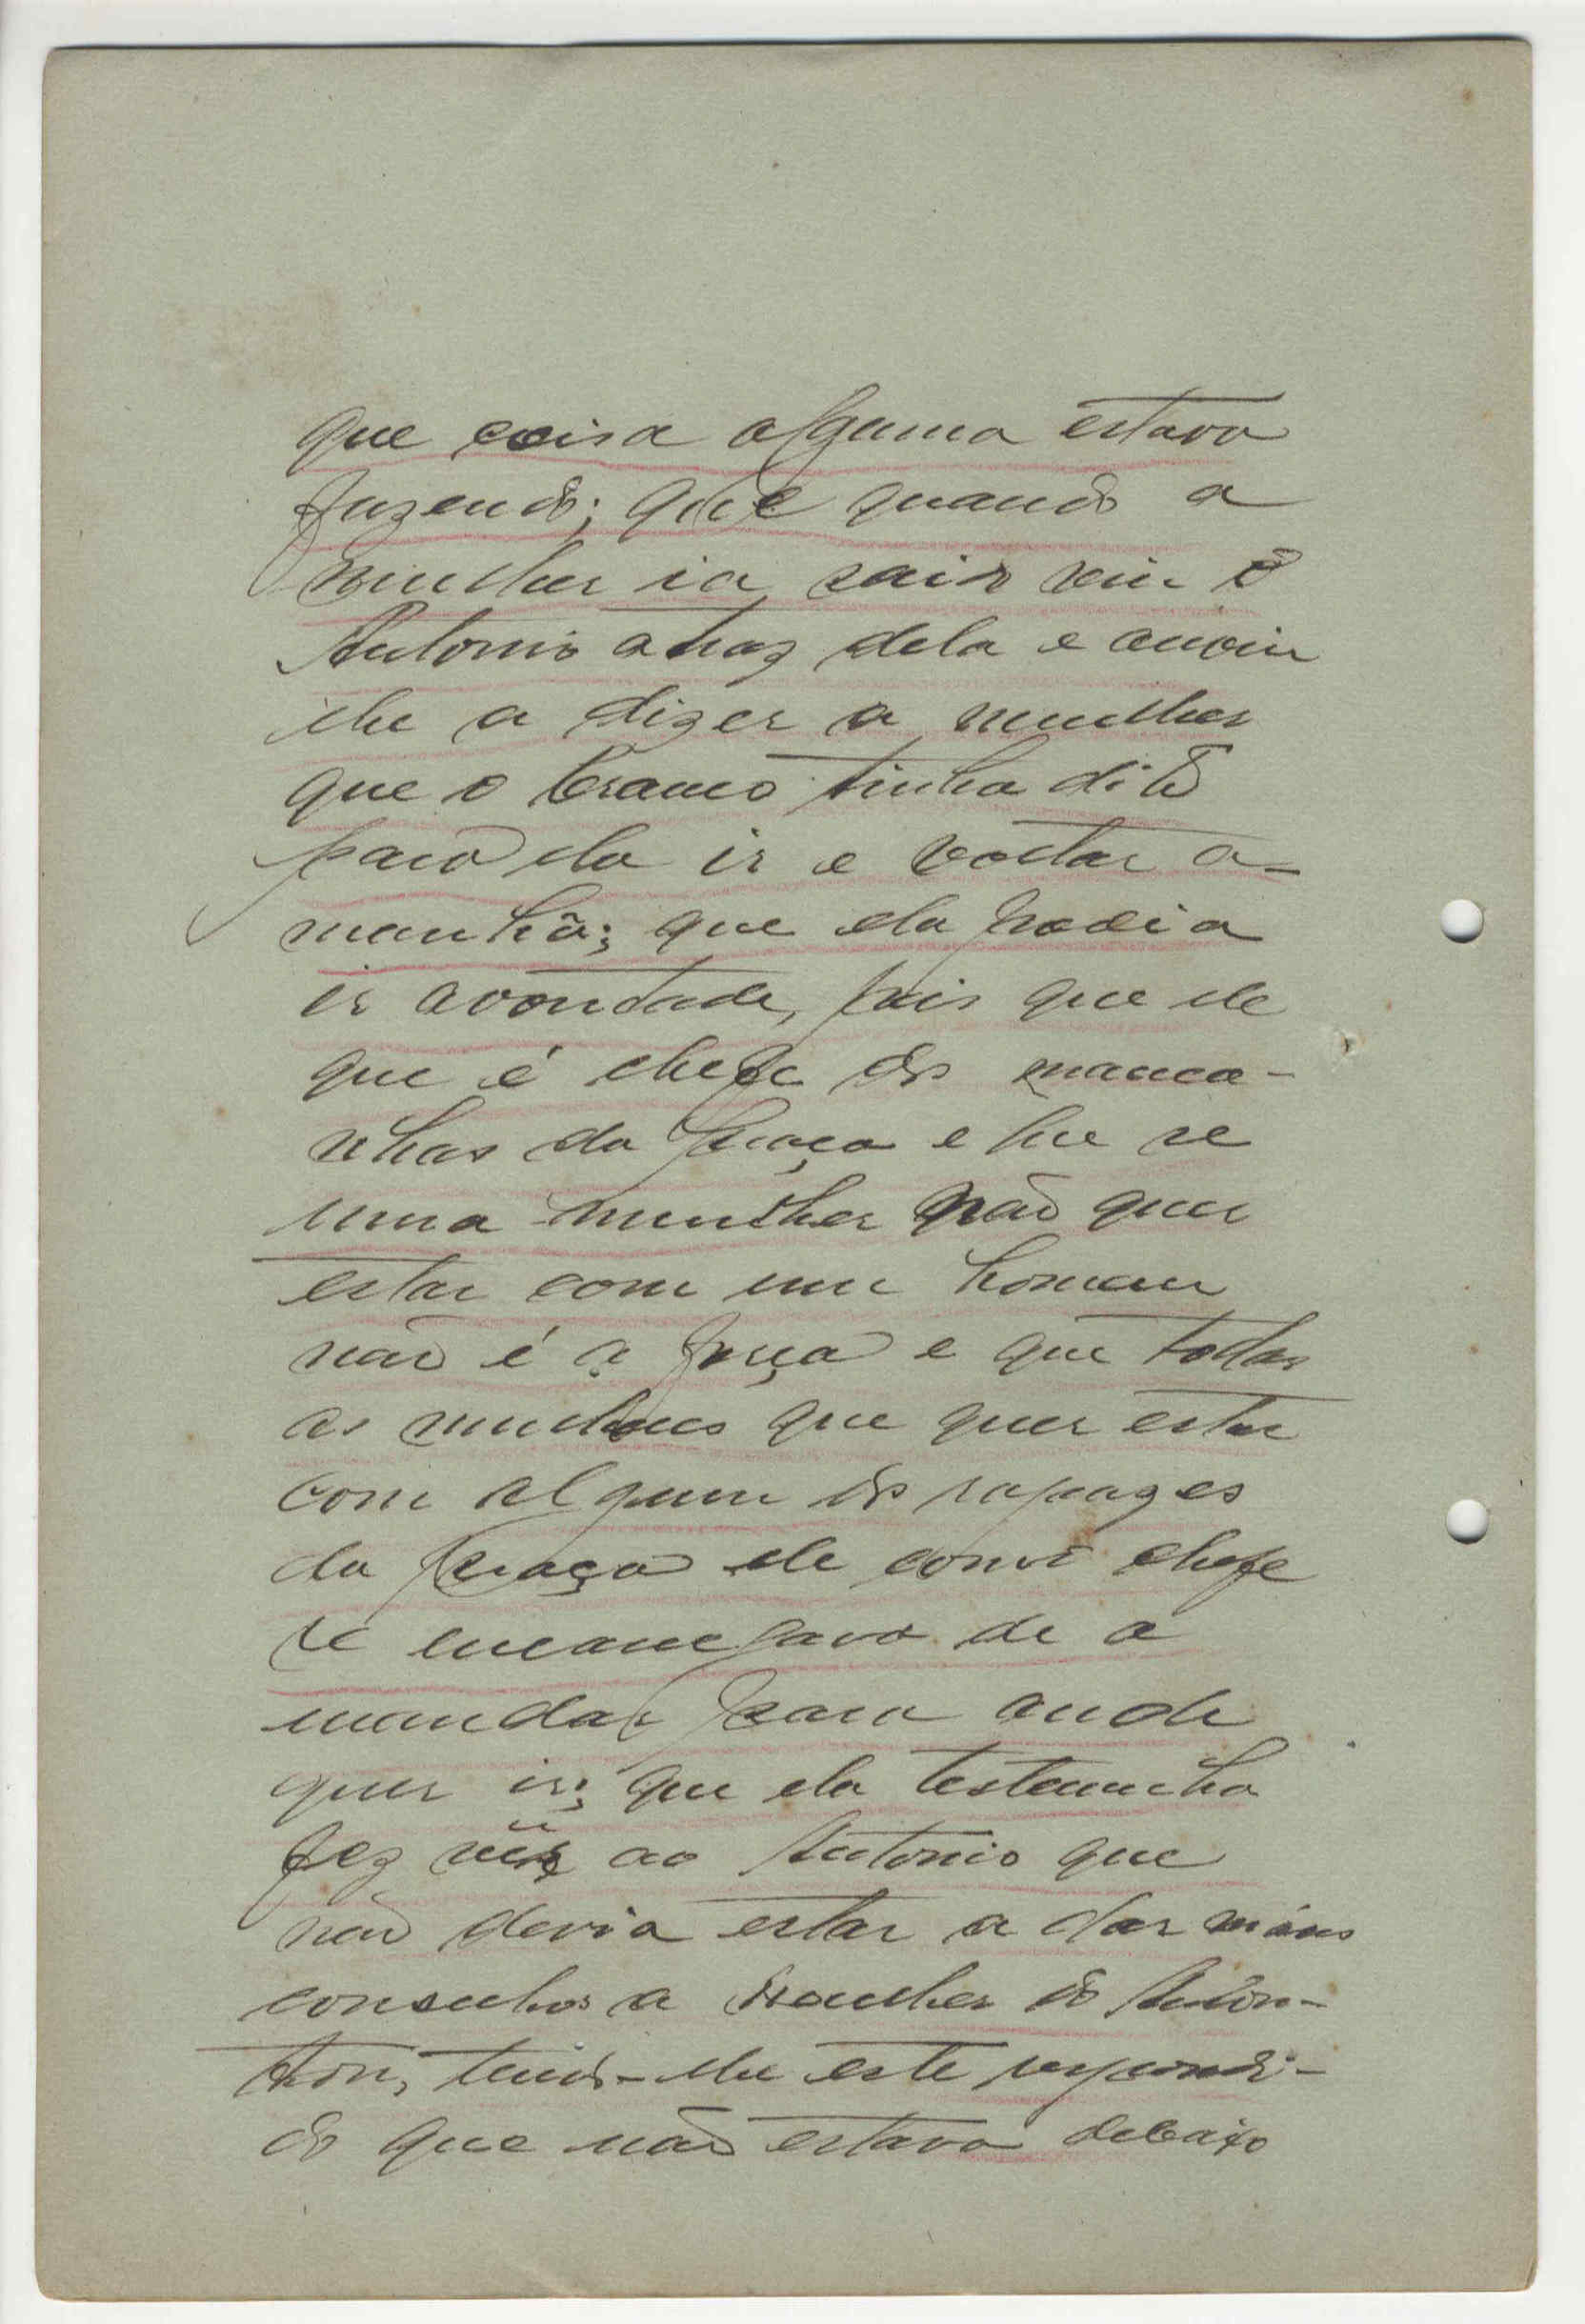 que coisa alguma estava
fazendo; que quando a
mulher ia sair veiu o
Antonio atraz dela e ouviu
ele a dizer a mulher
que o branco tinha dito
para ela ir e voltar a-
manhã; que ela podia
ir a vontade, pois que ele
que é chefe dos manca-
nhas da praça e que se
uma mulher não quer
estar com um homem
não é a força e que todas
as mulheres que quer estar
com algum dos rapazes
da praça ele como chefe
se encarregava de a
mandar para onde
quer ir; que ela testemunha
fez vêr ao Antonio que
não devia estar a dar máus
conselhos a mulher do
tendo-lhe este respondi-
do que não estava debaixo